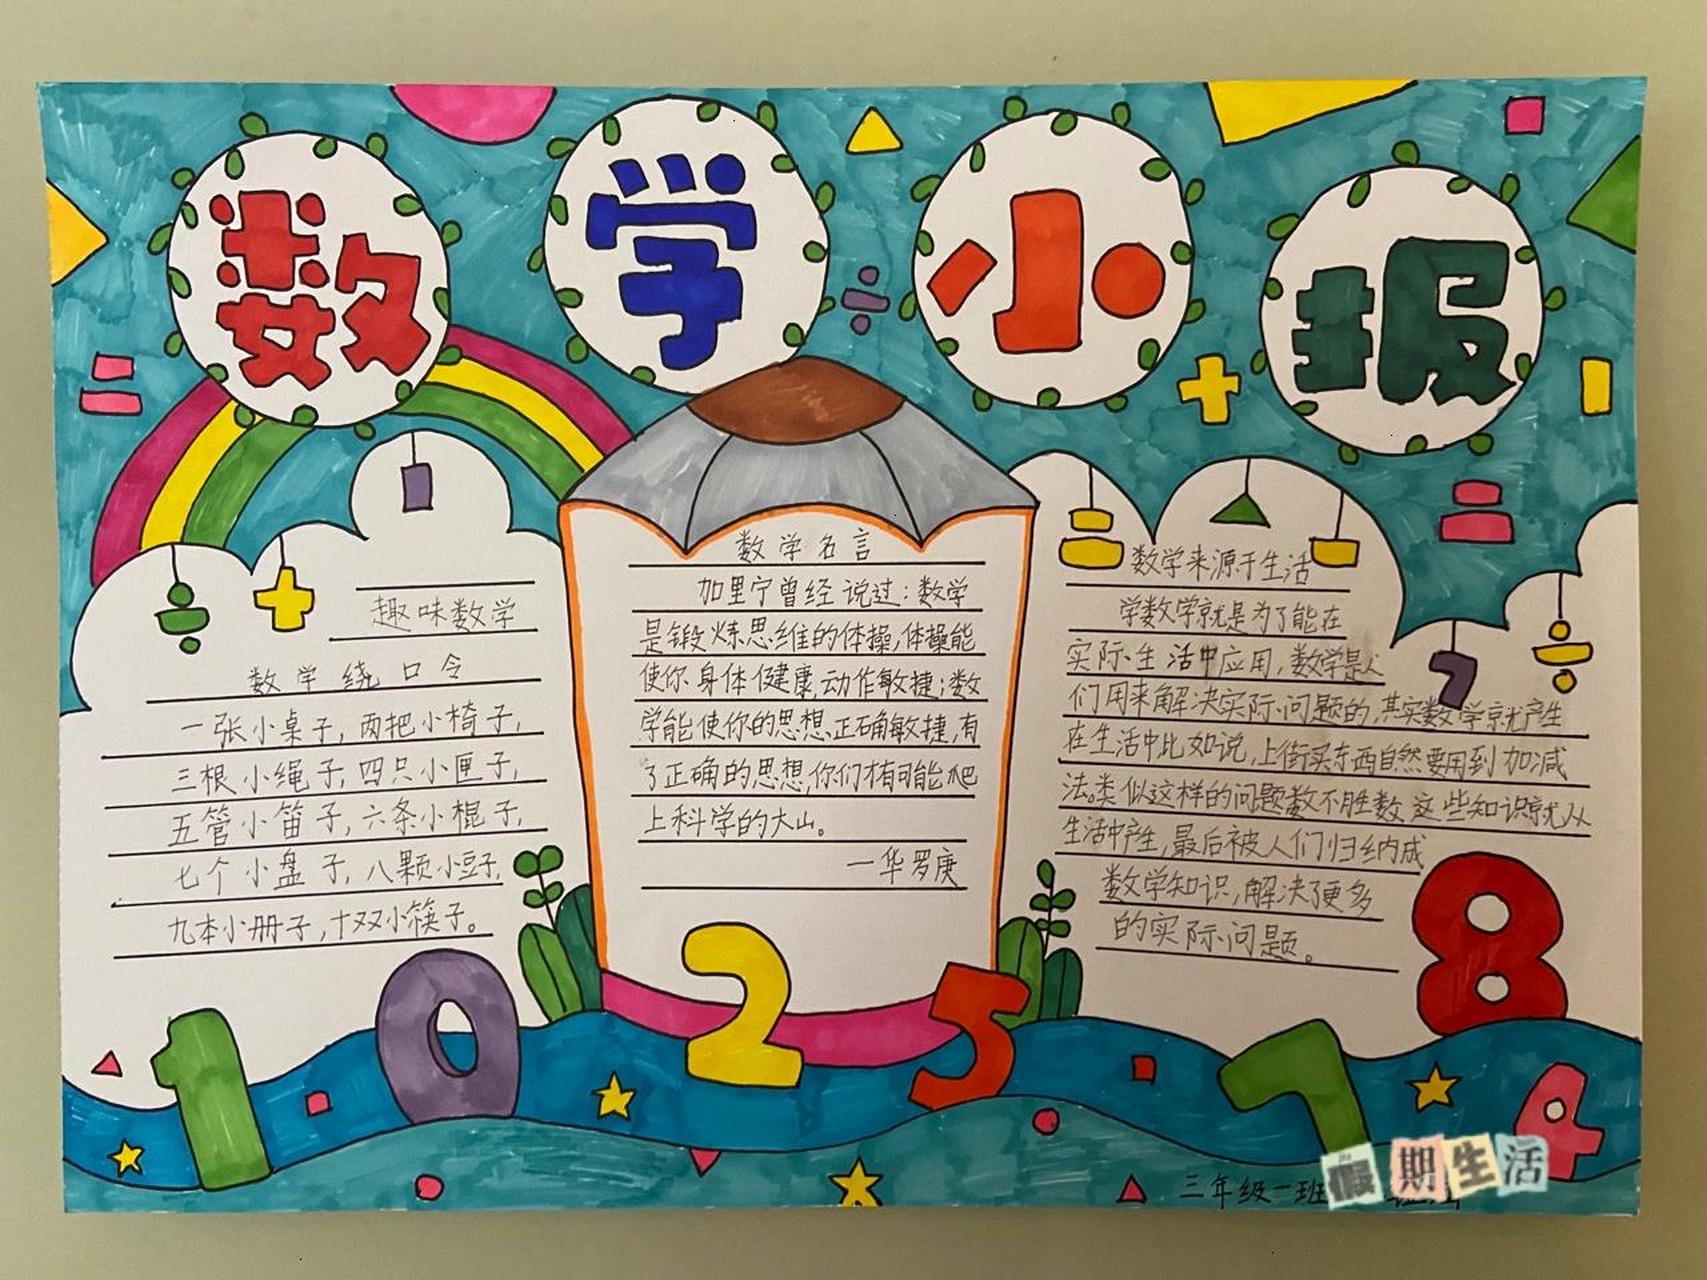 数学小报
趣味数学
数学绕口令
一张小桌子,两把小椅子,
三根小绳子,四只小匣子,
五管小笛子,六条小棍子,
七个小盘子,八颗小豆子,
九本小册子,十双小筷子。
数学名言
加里宁曾经说过:数学
是锻炼思维的体操,体操能
使你身体健康,动作敏捷;数
学能使你的思想正确敏捷,有
了正确的思想,你们才有可能爬
上科学的大山。
一华罗庚
数学来源于生活
学数学就是为了能在
实际生活中应用,数学是人
们用来解决实际问题的,其实数学就产生
在生活中比如说,上街买东西自然要用到加减
法。类似这样的问题数不胜数,这些知识就从
生活中产生,最后被人们归纳成
数学知识,解决了更多
的实际问题。
1 0 2 5 7 8 4
三年级一班
假期生活